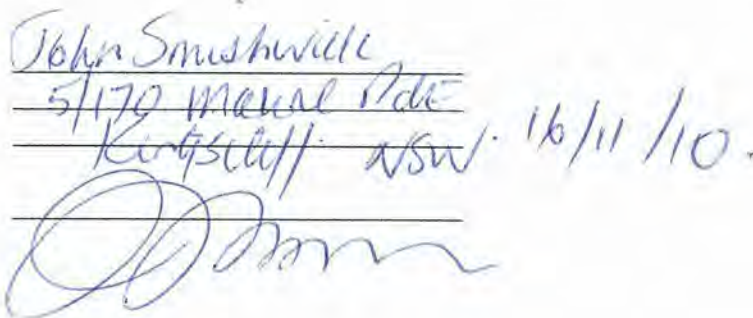 John Smishwick
5/170 Marine Pde
Kingscliff NSW. 16/11/10.